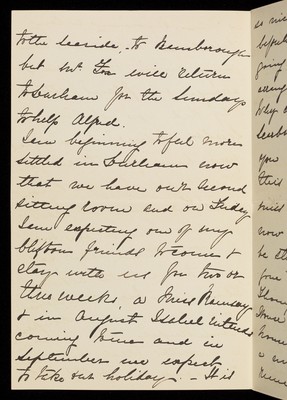 to the seaside, to Bamborough
but Mr. Fox will return
to Durham for the Sundays
to help Alfred.
I am beginning to feel more
settled in Durham now
that we have our second
sitting room and on Friday
I am expecting one of my
Clifton friends to come &
stay with us for two or
three weeks, a Miss Ramsay
& in August Isabel intends
coming home and in
September we expect
to take our holiday. - It is
going
you
this
miss
now
be th